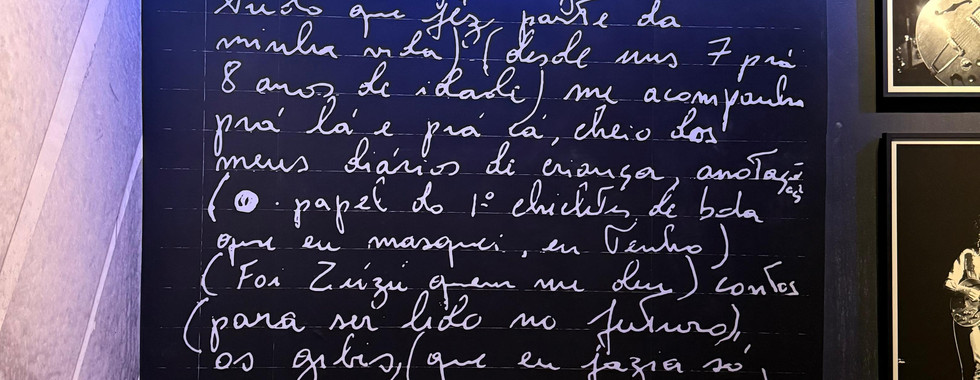 Tudo que fez parte da
minha vida) (desde uns 7 prá
8 anos de idade) me acompanha
prá lá e prá cá, cheio dos
meus diários de criança, anotações
(o papel do 1º chiclets de bola
que eu masquei, eu tenho)
(Foi Zuzú quem me deu) contos
(para ser lido no futuro),
os gibis, (que eu fazia só,